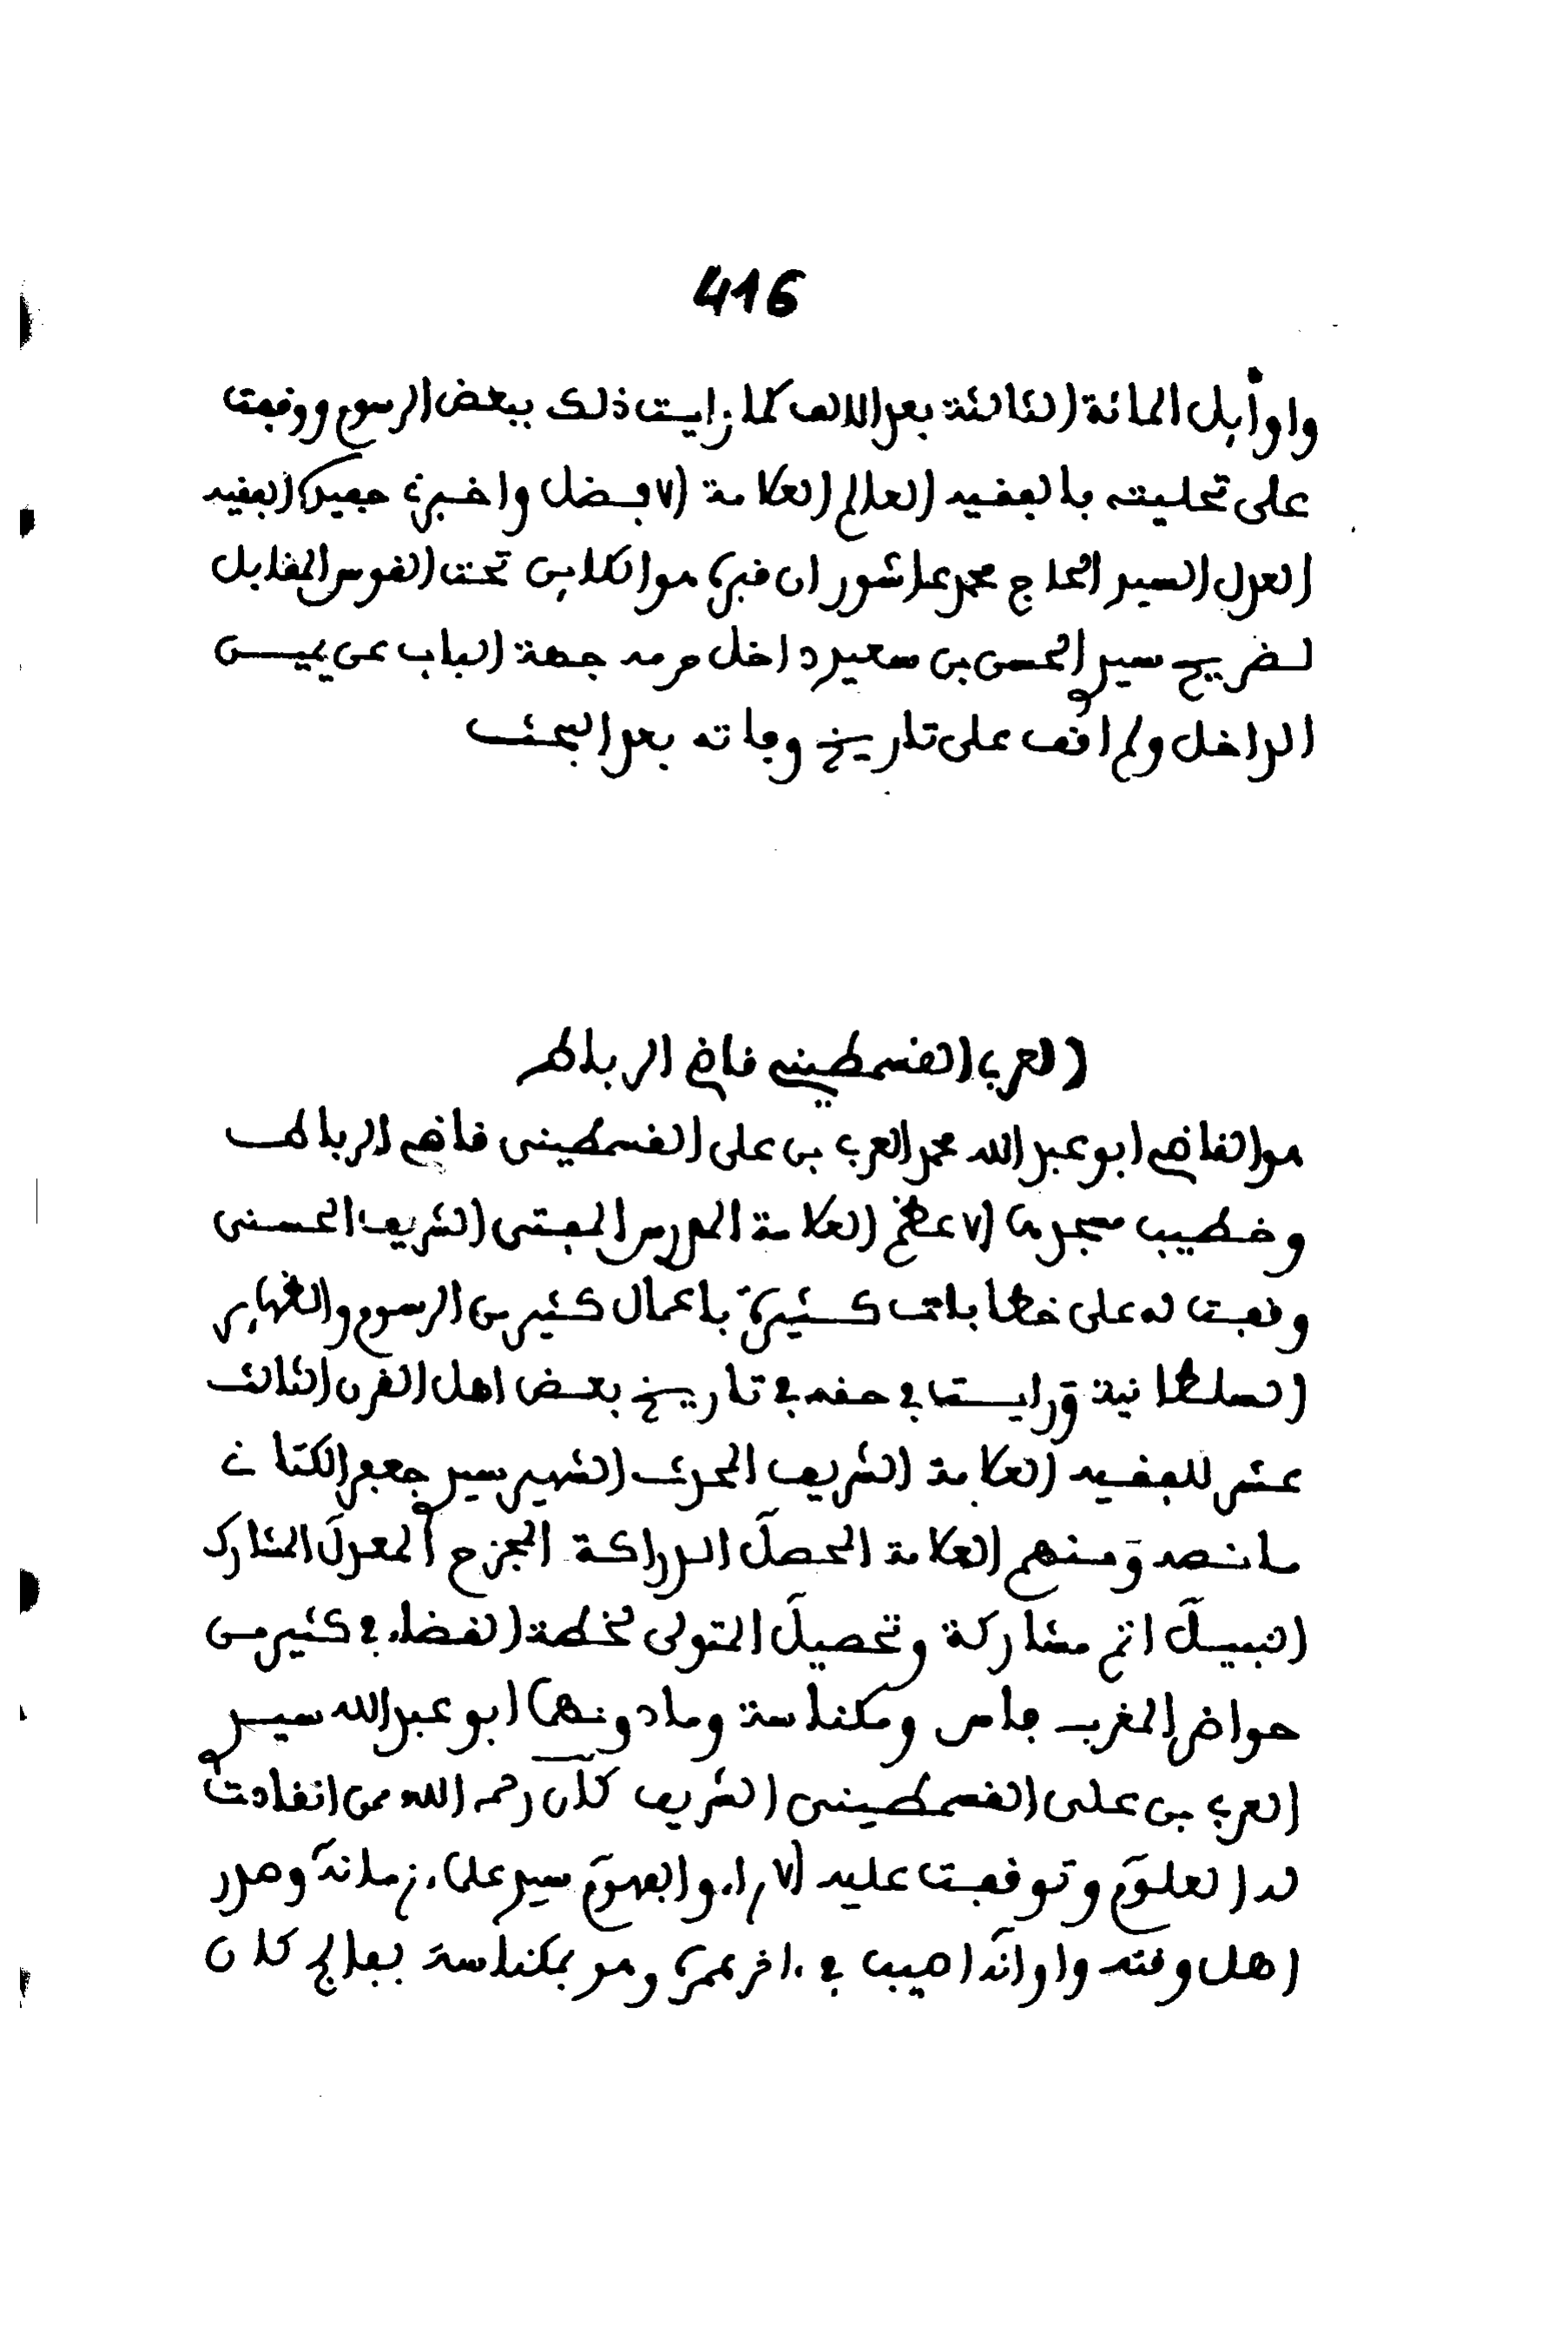 416
واوايل المائة الثالثة بعد الالف كما رايت ذلك ببعض الرسوم ووقفت
على تحليته بالفقيه العالم العلامة الافضل واخبرني حفيده الفقيه
العدل السيد الحاج محمد عاشور ان قبره هو الكاين تحت القوس المقابل
لضريح سيدي الحسن بن سعيد داخل حرمه جهة الباب عن يمين
الداخل ولم اقف على تاريخ وفاته بعد البحث
العربي القسمطيني قاضي الرباط
هو القاضي ابو عبد الله محمد العربي بن علي القسمطيني قاضي الرباط
وخطيب مسجدها الاعظم العلامة المدرس المفتي الشريف الحسني
وقفت له على خطابات كثيرة باعمال كثير من الرسوم والظهاير
السلطانية ورايت في حقه في تاريخ بعض اهل القرن الثالث
عشر للفقيه العلامة الشريف المحدث الشهير سيدي جعفر الكتاني
ما نصه ومنهم العلامة المحصل الدراكة المعدل المشارك
النبيل اتم مشاركة وتحصيل المتولى لخطة القضاء في كثير من
حواضر المغرب فاس ومكناسة وما دونها ابو عبد الله سيدي
العربي بن علي القسمطيني الشريف كان رحمه الله ممن انقادت
له العلوم وتوقفت عليه الاراء والفهوم سيد علماء زمانه وصدر
اهل وقته واوانه اصيب في ءاخر عمره وهو بمكناسة بفالج كان